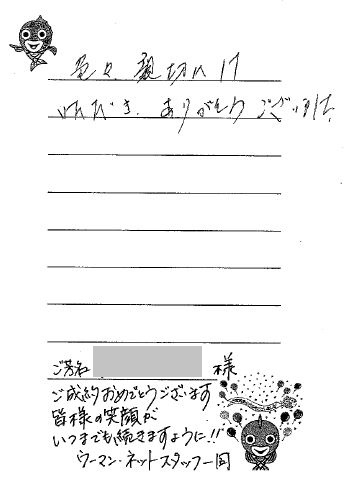 色々親切に
いただき、ありがとうございました。
ご芳名 様
ご成約おめでとうございます
皆様の笑顔が
いつまでも続きますように!!
ウーマン・ネットスタッフ一同